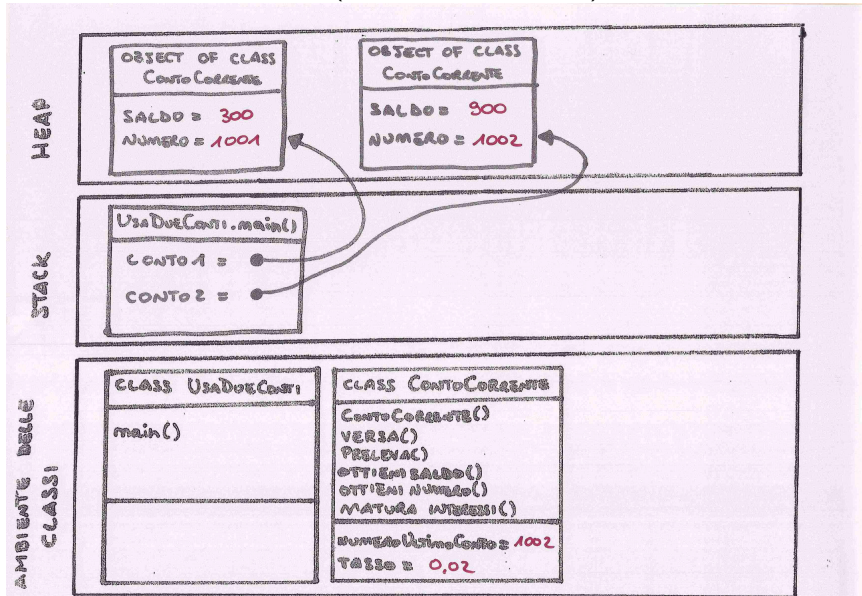 HEAP
OBJECT OF CLASS
ContoCorrente
SALDO = 300
NUMERO = 1001
OBJECT OF CLASS
ContoCorrente
SALDO = 900
NUMERO = 1002
STACK
UsaDueConti.main()
CONTO1 =
CONTO2 =
AMBIENTE DELLE
CLASSI
CLASS UsaDueConti
main()
CLASS ContoCorrente
ContoCorrente()
VERSA()
PRELEVA()
OTTIENI SALDO()
OTTIENI NUMERO()
MATURA INTERESSI()
NUMEROUltimoConto = 1002
TASSO = 0,02